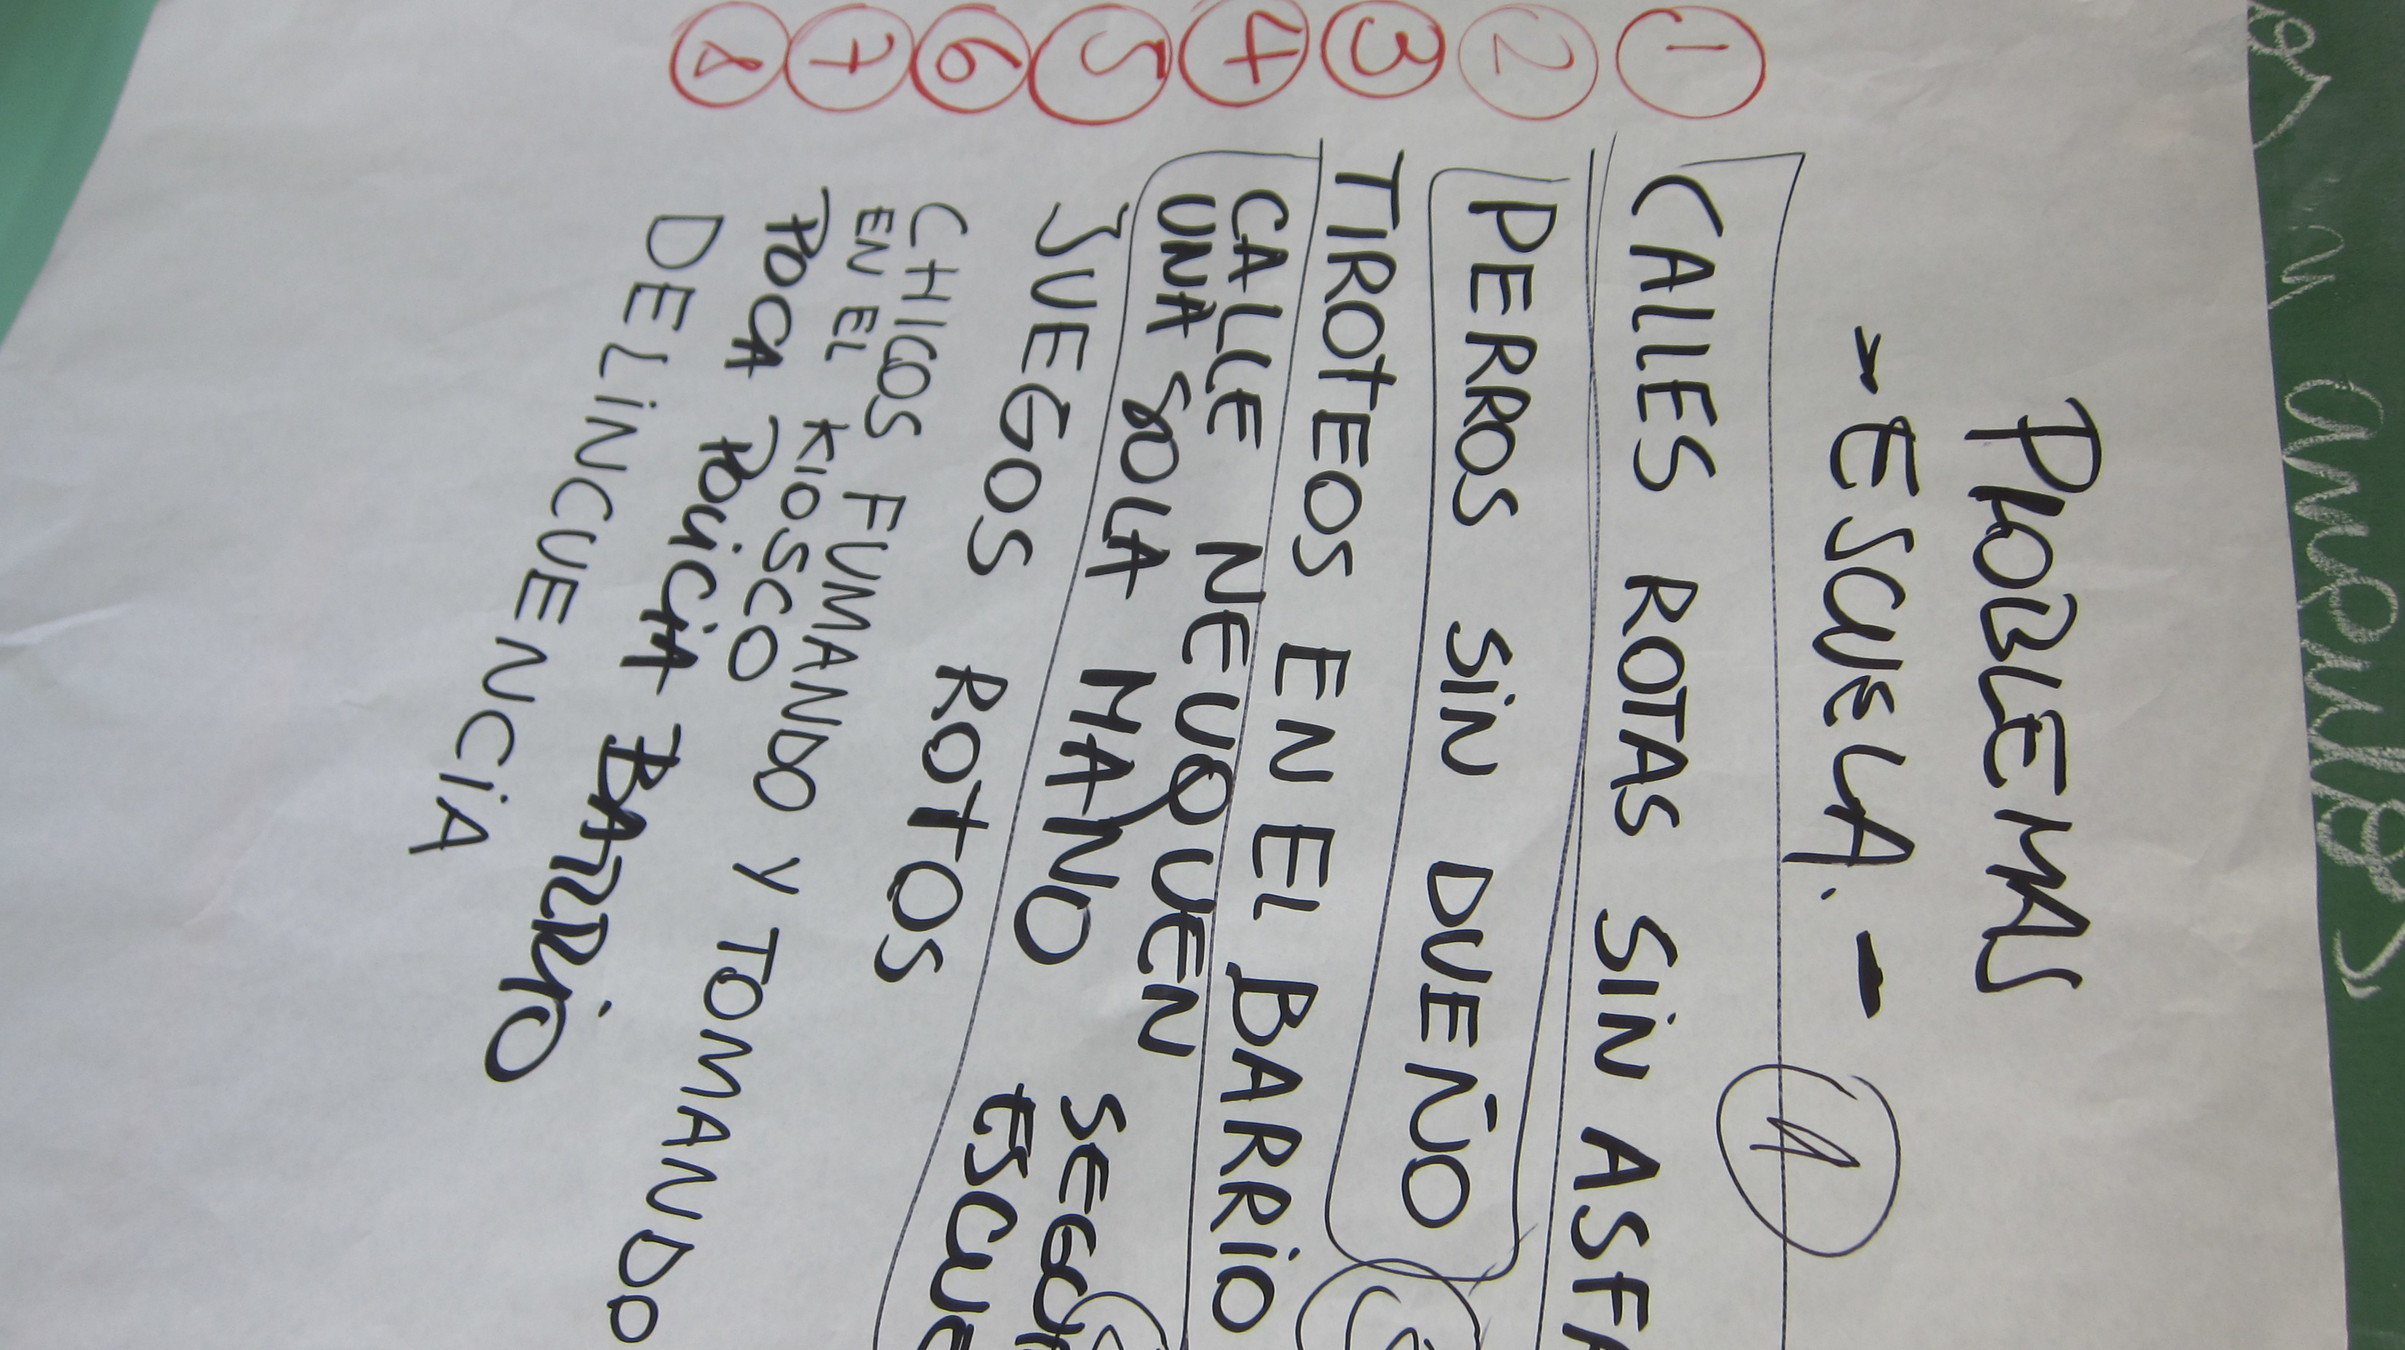 PROBLEMAS
- ESCUELA. -
1 CALLES ROTAS SIN ASFA
2 PERROS SIN DUEÑO
3 TIROTEOS EN EL BARRIO
4 CALLE NEUQUEN
UNA SOLA MANO
5 JUEGOS ROTOS
6 CHICOS FUMANDO Y TOMANDO
EN EL KIOSCO
7 POCA POLICIA BARRIO
8 DELINCUENCIA